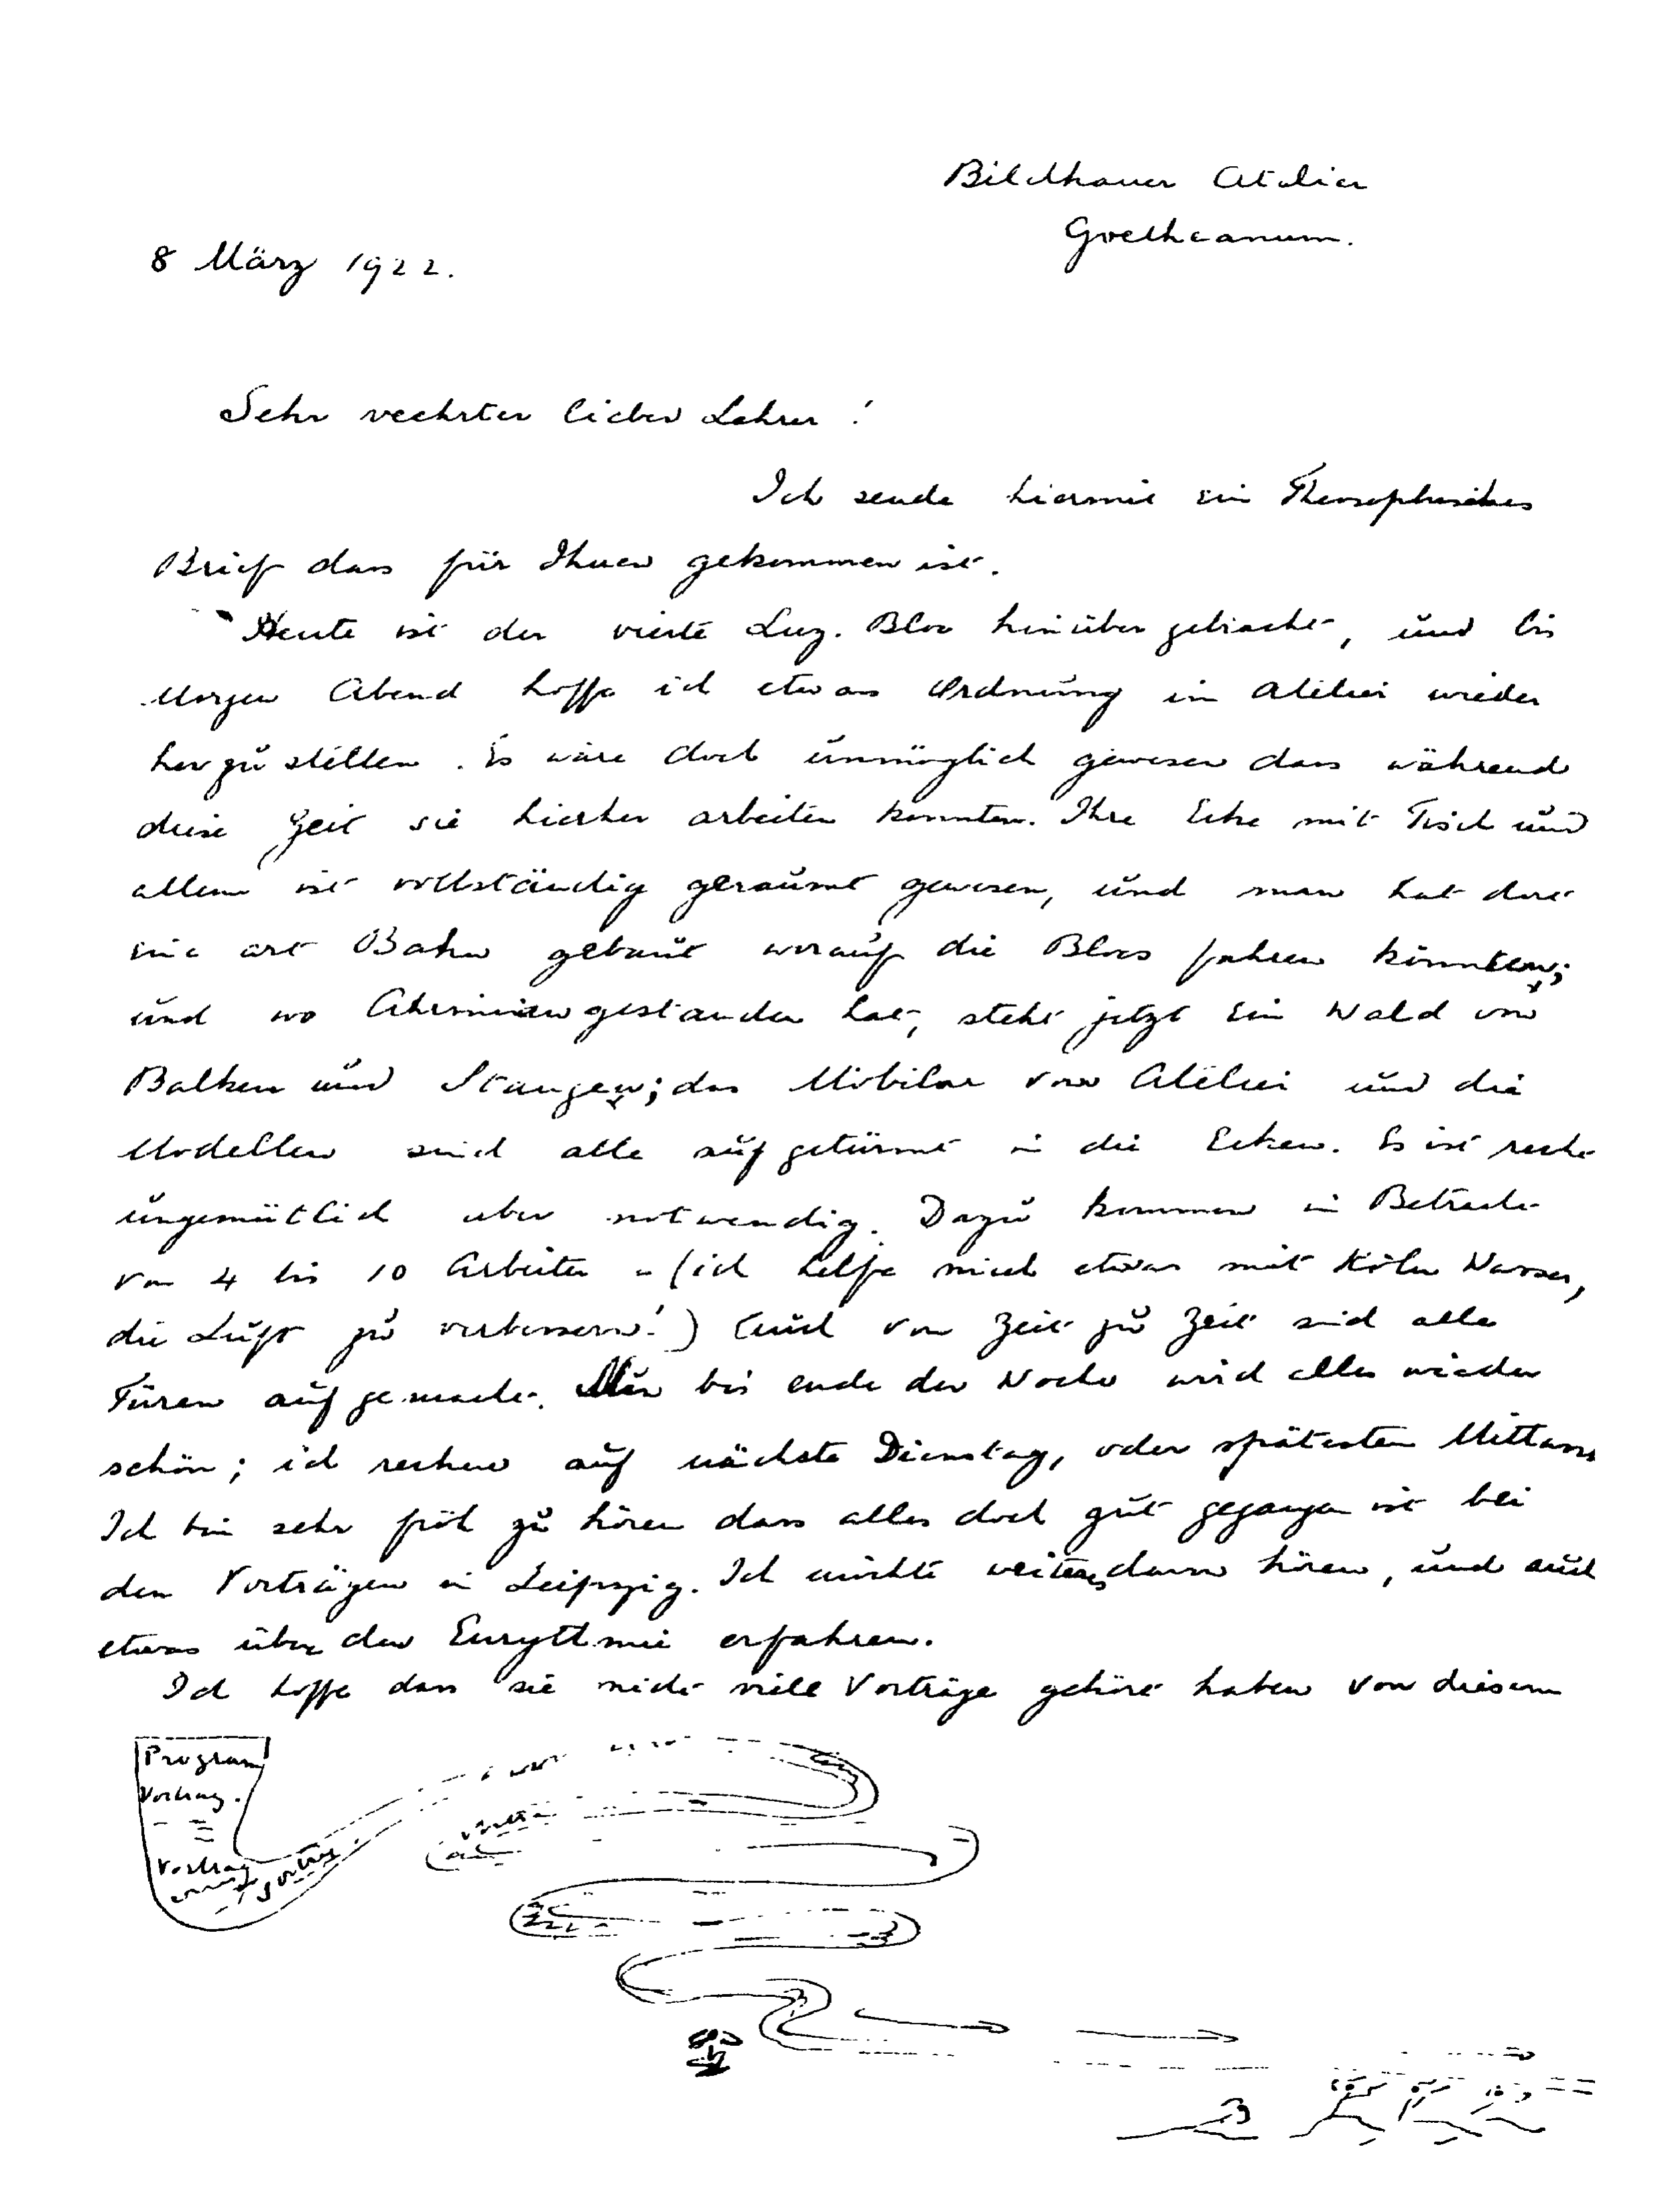 Bildhauer Atelier
Goetheanum.
8 März 1922.
Sehr veehrter lieber Lehrer !
Ich sende hiermit ein Theosophisches
Brief dass für Ihnen gekommen ist.
Heute ist der vierte Luz. Bloc hinüber gebracht, und bis
Morgen Abend hoffe ich etwas Ordnung in Atelier wieder
herzustellen. Es wäre doch unmöglich gewesen dass während
diese Zeit sie hierher arbeiten konnten. Ihre Ecke mit Tisch und
allem ist vollständig geraumt gewesen, und man hat dort
eine art Bahn gebaut worauf die Blocs fahren könnten;
und wo Ahriman gestanden hat, steht jetzt ein Wald von
Balken und Stangen; das Mobilar von Atelier und die
Modellen sind alle aufgetürmt in die Ecken. Es ist recht
ungemütlich aber notwendig. Dazu kommen in Betracht
von 4 bis 10 Arbeiter - (ich helfe mich etwas mit Köln Wasser,
die Luft zu verbessern!) Auch von Zeit zu Zeit sind alle
Türen aufgemacht. Nun bis ende der Woche wird alles wieder
schön; ich rechne auf nächste Dienstag, oder spätesten Mittwoch
Ich bin sehr froh zu hören dass alles doch gut gegangen ist bei
den Vorträgen in Leipzig. Ich möchte weiteres davon hören, und auch
etwas über der Eurythmie erfahren.
Ich hoffe dass sie nicht viele Vorträge gehört haben von diesem
Program
Vortrag.
Vortrag